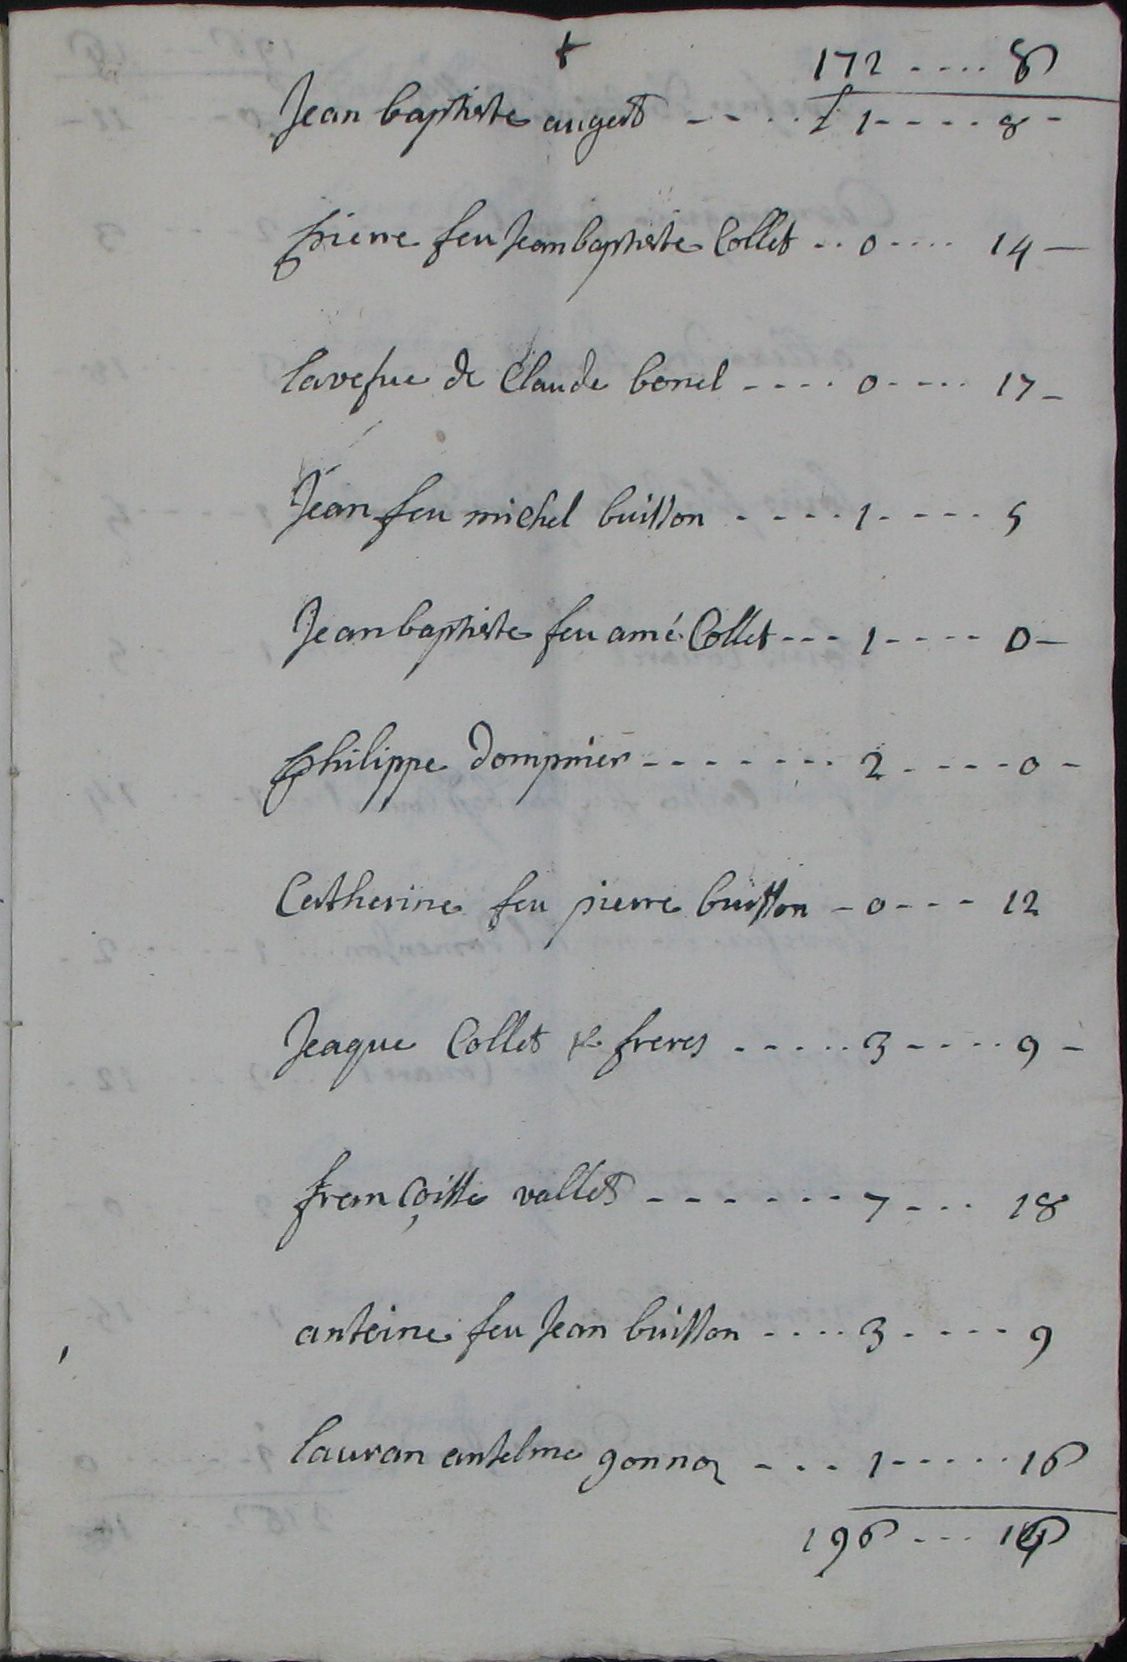 172 .... 8
Jean baptiste auget - - . . £ 1 - - - - 8 -
pierre feu Jean baptiste Collet .. 0 .... 14 -
lavefue de Claude bonel - - - - 0 - - .. 17 -
Jean feu michel buisson . - - - 1 - - - - 5
Jean baptiste feu amé Collet - - - 1 - - - - 0 -
philippe dompnier - - - - - . .. 2 . - - - 0 -
Catherine feu pierre buisson - 0 - - - 12
Jeaque Collet & freres . - - . . 3 - - - . 9 -
francoisse vallet - - - - - - - 7 - . . 18
antoine feu Jean buisson .... 3 . - - - 9
lauran antelme gonnoz - . . 1 - - . . . 16
196 - - . .